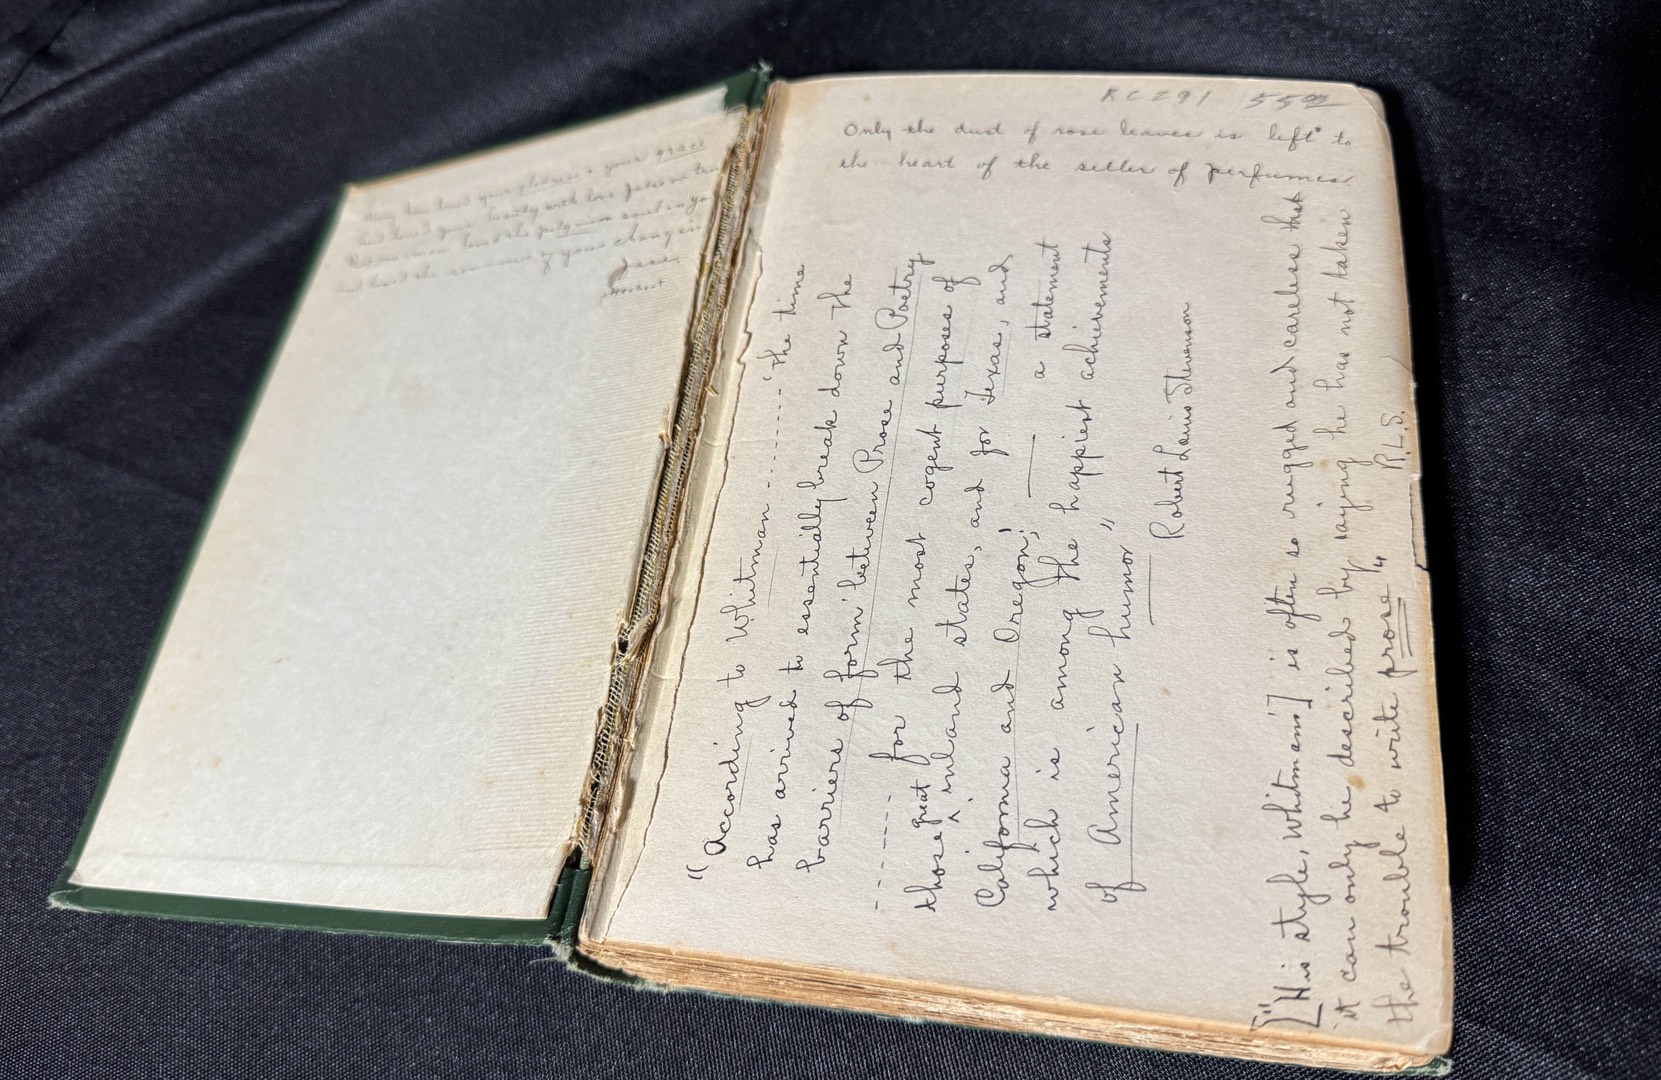 Many have loved your gladness & your grace
And loved your beauty with love false or true
But one man loved the pilgrim soul in yo
And loved the sorrows of your changin
RC291 55.00
Only the dust of rose leaves is left to
the heart of the seller of perfumes
"According to Whitman ------ 'the time
has arrived to essentially break down the
barriers of form' between Prose and Poetry
------ for the most cogent purposes of
those great inland states, and for Texas, and
California and Oregon;' —— a statement
which is among the happiest achievements
of American humor"
—— Robert Louis Stevenson
["His style, Whitman's] is often so rugged and careless that
it can only be described by saying he has not taken
the trouble to write prose" R.L.S.